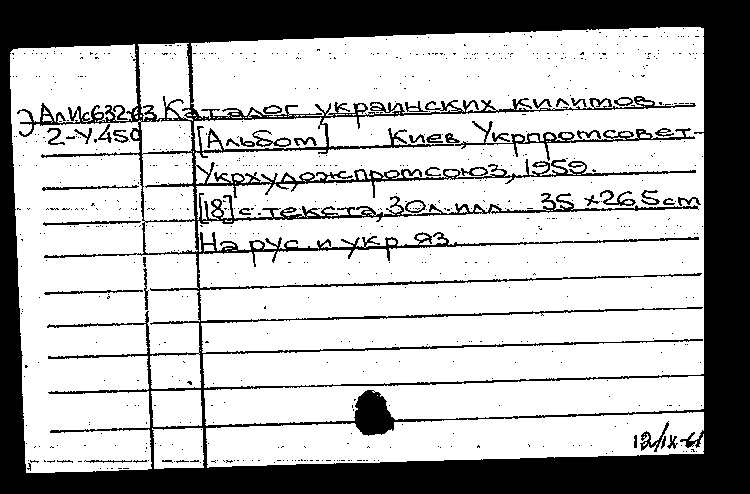 Э АлИс632-63 Каталог украинских килимов.
2-У.450 [Альбом] Киев, Укрпромсовет-
Укрхудожпромсоюз, 1959.
[18] с. текста, 30 л. илл. 35 × 26,5 cm
На рус. и укр. яз.
12/IX-61